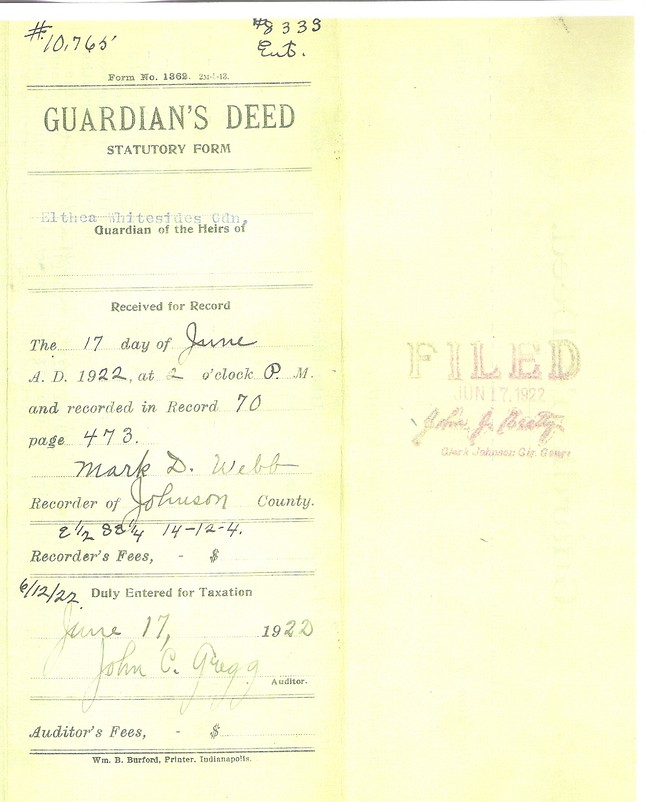 #10,765
#8333
Ent.
Form No. 1362. 2M-5-13.
GUARDIAN'S DEED
STATUTORY FORM
Elthea Whitesides Gdn,
Guardian of the Heirs of
Received for Record
The 17 day of June
A. D. 1922, at 2 o'clock P. M.
and recorded in Record 70
page 473.
Mark D. Webb
Recorder of Johnson County.
E 1/2 SE 1/4 14-12-4.
Recorder's Fees, - $
6/12/22 Duly Entered for Taxation
June 17, 1922
John C. Gregg
Auditor.
Auditor's Fees, - $
Wm. B. Burford, Printer, Indianapolis.
FILED
JUN 17, 1922
John J. Beatty
Clerk Johnson Cir. Court